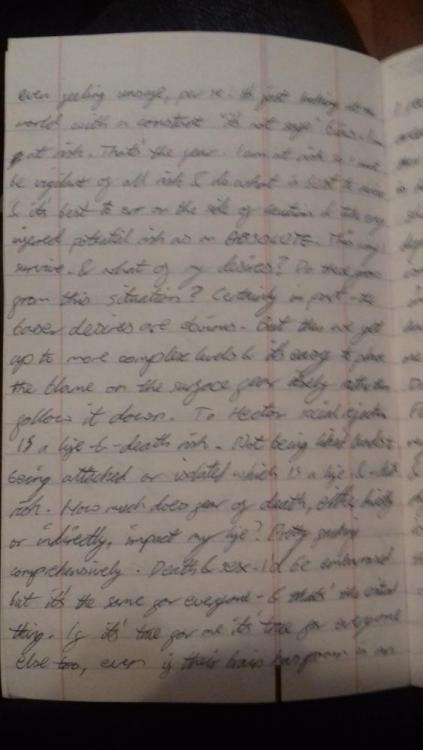 even feeling unsafe, per se. It's just looking at the
world with a constant "it's not safe" bias. I am
at risk. That's the fear. I am at risk so I must
be vigilant of all risk & do what is best to survive
& it's best to err on the side of caution & take any
inferred potential risk as an ABSOLUTE. This way I
survive. & what of my desires? Do these grow
from this situation? Certainly in part - the
baser desires are obvious. But then we get
up to more complex levels & it's easy to place
the blame on the surface fear rather
follow it down. To Hector social rejection
is a life-&-death risk. Not being liked
being attacked or isolated which is a life-&-death
risk. How much does fear of death, either directly
or indirectly, impact my life? Pretty
comprehensively. Death & sex. I'd be embarrassed
but it's the same for everyone - & that's the
thing. If it's true for me it's true for everyone
else too, even if their brain in an